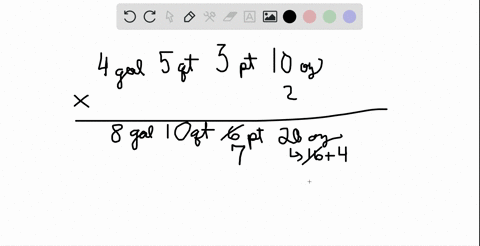 4 gal 5 qt 3 pt 10 oz
× 2
8 gal 10 qt 6 pt 20 oz
7 ↳ 16 + 4